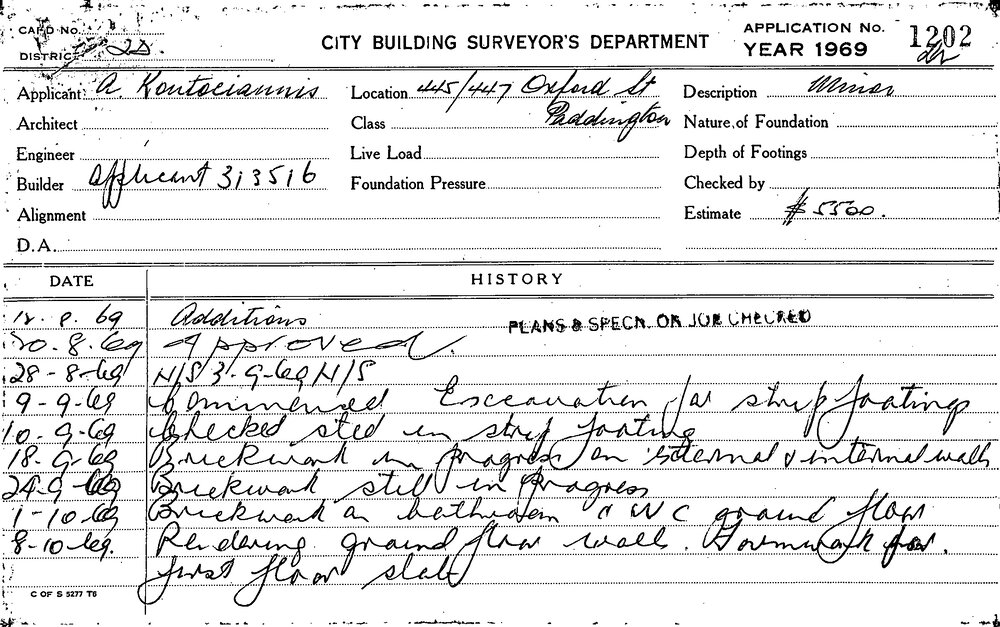 CARD No.
DISTRICT 2D
CITY BUILDING SURVEYOR'S DEPARTMENT
APPLICATION No. 1202
YEAR 1969
Applicant A. Kontociannis
Location 445/447 Oxford St
Paddington
Description Minor
Architect
Class
Nature of Foundation
Engineer
Live Load
Depth of Footings
Builder Applicant 313516
Foundation Pressure
Checked by
Alignment
Estimate $5500.
D.A.
DATE HISTORY
18. 8. 69 Additions
PLANS & SPECN. ON JOB CHECKED
20. 8. 69 Approved.
28-8-69 N/S 3-9-69 N/S
9-9-69 Commenced Excavation for strip footings
10-9-69 Checked steel in strip footing
18-9-69 Brickwork in progress on external & internal walls
24-9-69 Brickwork still in progress
1-10-69 Brickwork on bathroom & WC ground floor
8-10-69. Rendering ground floor walls. Formwork for.
first floor slab
C OF S 5277 T6